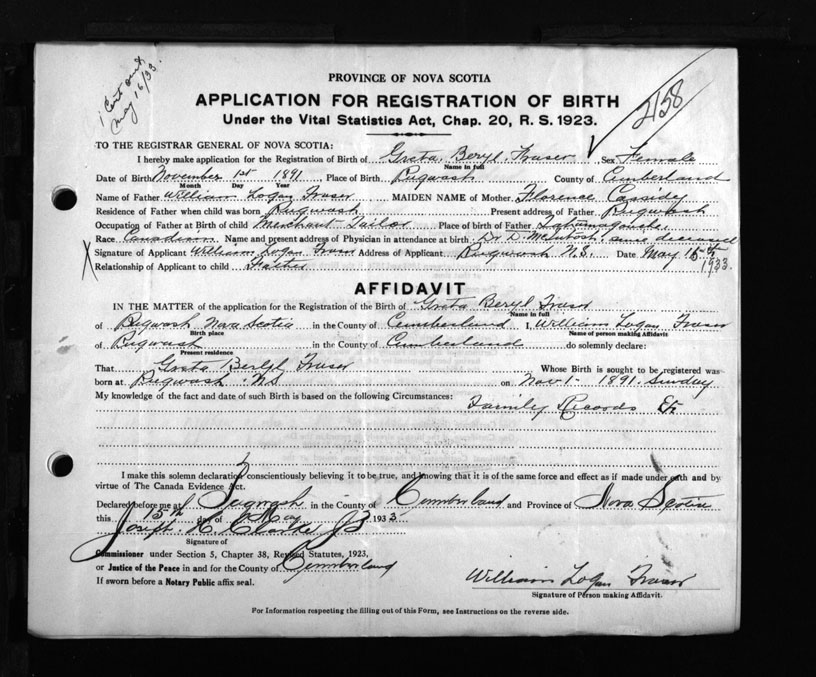 1 Cert out.
May 16/33.
2158
PROVINCE OF NOVA SCOTIA
APPLICATION FOR REGISTRATION OF BIRTH
Under the Vital Statistics Act, Chap. 20, R. S. 1923.
TO THE REGISTRAR GENERAL OF NOVA SCOTIA:
I hereby make application for the Registration of Birth of Greta Beryl Fraser Sex Female
Name in full
Date of Birth November 1st 1891 Place of Birth Pugwash County of Cumberland
Month Day Year
Name of Father William Logan Fraser MAIDEN NAME of Mother Florence Cassidy
Residence of Father when child was born Pugwash Present address of Father Pugwash
Occupation of Father at Birth of child Merchant Tailor Place of birth of Father Tatamagouche
Race Canadian Name and present address of Physician in attendance at birth Dr D. McIntosh, same deceased
Signature of Applicant William Logan Fraser Address of Applicant Pugwash N.S. Date May 15th 1933.
Relationship of Applicant to child Father
AFFIDAVIT
IN THE MATTER of the application for the Registration of the Birth of Greta Beryl Fraser
Name in full
of Pugwash Nova Scotia in the County of Cumberland I, William Logan Fraser
Birth place Name of person making Affidavit
of Pugwash in the County of Cumberland do solemnly declare:
Present residence
That Greta Beryl Fraser Whose Birth is sought to be registered was
born at Pugwash N.S on Nov. 1 - 1891. Sunday
My knowledge of the fact and date of such Birth is based on the following Circumstances: Family Records Etc
I make this solemn declaration conscientiously believing it to be true, and knowing that it is of the same force and effect as if made under oath and by
virtue of The Canada Evidence Act.
Declared before me at Pugwash in the County of Cumberland and Province of Nova Scotia
this 15th day of May 1933
Joseph Clarke J.P.
Signature of
Commissioner under Section 5, Chapter 38, Revised Statutes, 1923,
or Justice of the Peace in and for the County of Cumberland
If sworn before a Notary Public affix seal.
William Logan Fraser
Signature of Person making Affidavit.
For Information respecting the filling out of this Form, see Instructions on the reverse side.